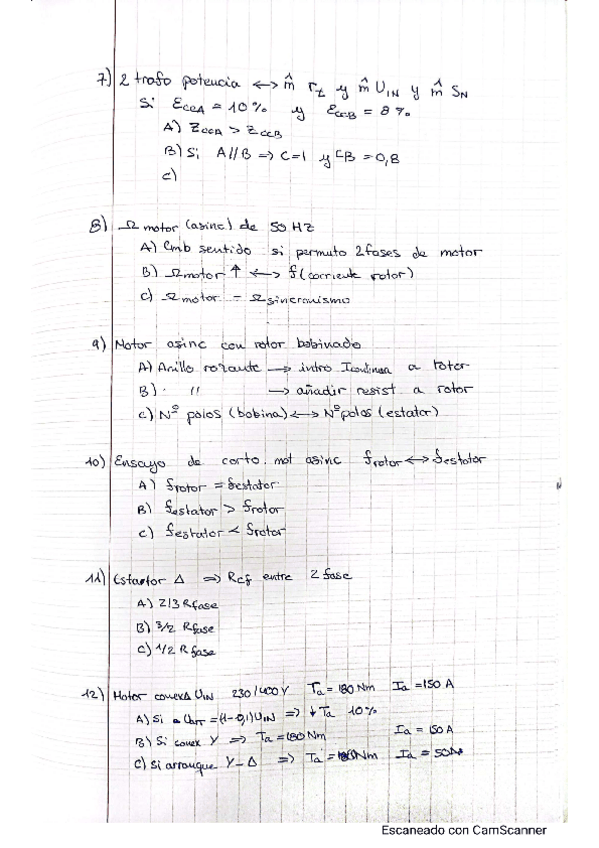 7) 2 trafo potencia ↔ m̂ r_t y m̂ U_IN y m̂ S_N
Si Ecca = 10% y Eccb = 8%
A) Zcca > Zccb
B) Si A//B ⇒ C=1 y CB = 0,8
c)
8) Ω motor (asinc) de 50 HZ
A) Cmb sentido si permuto 2 fases de motor
B) Ωmotor ↑ ↔ f (corriente rotor)
C) Ωmotor = Ωsincronismo
9) Motor asinc con rotor bobinado
A) Anillo rozante → intro Icontinua a rotor
B) " → añadir resist a rotor
c) Nº polos (bobina) ↔ Nº polos (estator)
10) Ensayo de corto. mot asinc frotor ↔ festator
A) frotor = festator
B) festator > frotor
C) festator < frotor
11) Estator Δ ⇒ Ref entre 2 fase
A) 2/3 Rfase
B) 3/2 Rfase
C) 1/2 Rfase
12) Motor conexΔ U_IN 230/400V Ta = 180 Nm Ia = 150 A
A) Si = (1-0,1)U_IN ⇒ ↓Ta 10%
B) Si conex Y ⇒ Ta = 180 Nm Ia = 150 A
C) Si arranque Y-Δ ⇒ Ta = Nm Ia = 50A
Escaneado con CamScanner